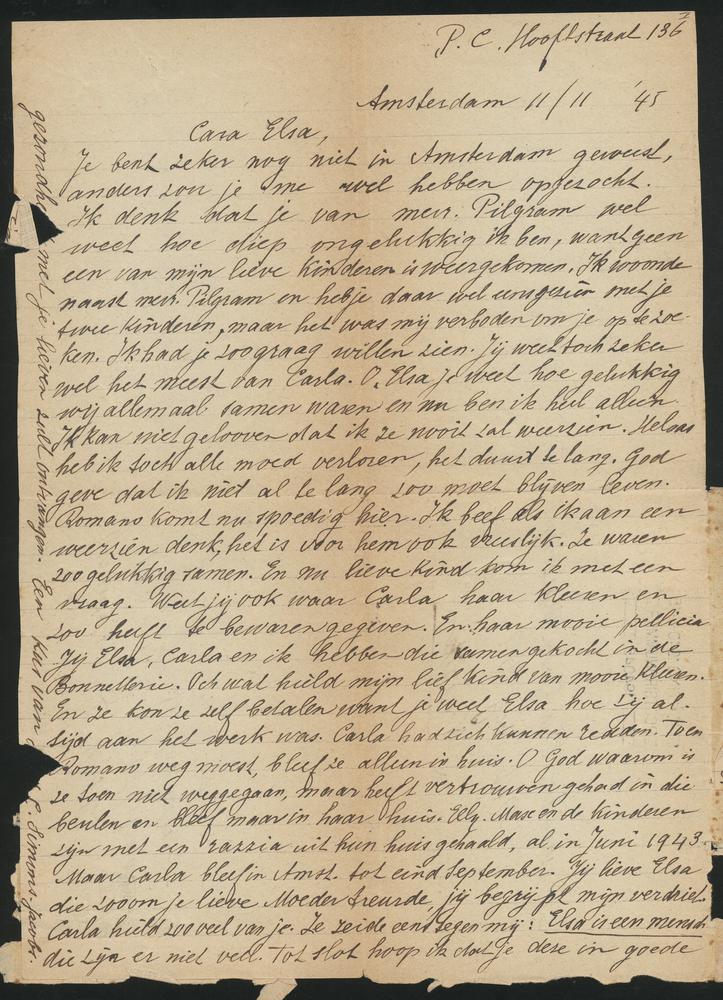 P. C. Hooftstraat 136 I
Amsterdam 11/11 '45
Cara Elsa,
Je bent zeker nog niet in Amsterdam geweest,
anders zou je me wel hebben opgezocht.
Ik denk dat je van mevr. Pilgram wel
weet hoe diep ongelukkig ik ben, want geen
een van mijn lieve kinderen is weergekomen. Ik woonde
naast mevr. Pilgram en heb je daar wel eens gezien met je
twee kinderen, maar het was mij verboden om je op te zoe-
ken. Ik had je zoo graag willen zien. Jij weet toch zeker
wel het meest van Carla. O, Elsa je weet hoe gelukkig
wij allemaal samen waren en nu ben ik heel alleen.
Ik kan niet gelooven dat ik ze nooit zal weerzien. Helaas
heb ik toch alle moed verloren, het duurt te lang. God
geve dat ik niet al te lang zoo moet blijven leven.
Romano komt nu spoedig hier. Ik beef als ik aan een
weerzien denk, het is voor hem ook vreeslijk. Ze waren
zoo gelukkig samen. En nu lieve kind kom ik met een
vraag. Weet jij ook waar Carla haar kleeren en
zoo heeft te bewaren gegeven. En haar mooie pellicia
Jij Elsa, Carla en ik hebben die samen gekocht in de
Bonnetterie. Och wat hield mijn lief kind van mooie kleeren.
En ze kon ze zelf betalen want je weet Elsa hoe zij al-
tijd aan het werk was. Carla had zich kunnen redden. Toen
Romano weg moest, bleef ze alleen in huis. O God waarom is
ze toen niet weggegaan, maar heeft vertrouwen gehad in die
beulen en bleef maar in haar huis. Elly, Max en de kinderen
zijn met een razzia uit hun huis gehaald, al in Juni 1943.
Maar Carla bleef in Amst. tot eind September. Jij lieve Elsa
die zoo om je lieve Moeder treurde, jij begrijpt mijn verdriet.
Carla hield zoo veel van je. Ze zeide eens tegen mij: Elsa is een mensch
die zijn er niet veel. Tot slot hoop ik dat je deze in goede
gezondh met je lieven zult ontvangen. Een kus van
P. Simons-Jacobs.